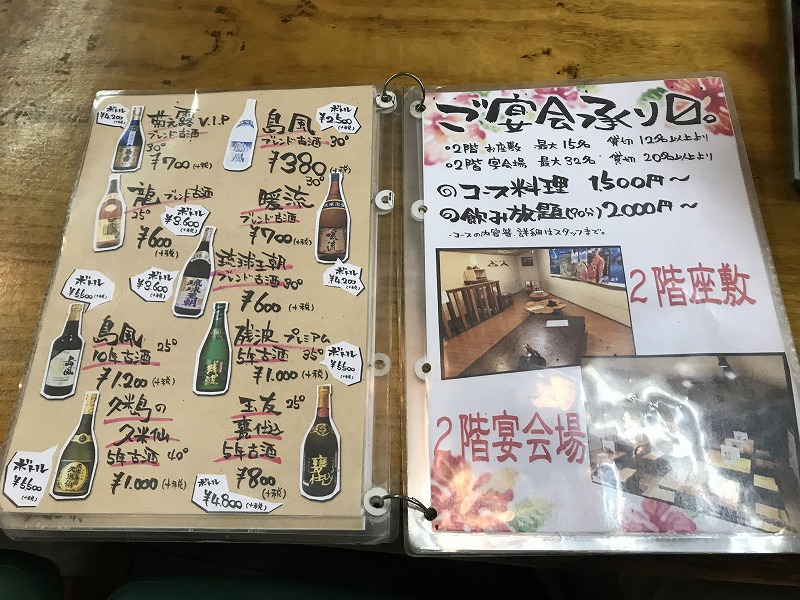 ボトル
¥4.200
(+税)
菊之露 V.I.P
ブレンド古酒
30°
¥700 (+税)
島風
ブレンド古酒 30°
¥380 (+税)
ボトル
¥2,500
(+税)
龍 ブレンド古酒
25°
¥600 (+税)
ボトル
¥3.600
(+税)
30°
暖流
ブレンド古酒
¥700 (+税)
ボトル
¥4.200
(+税)
琉球王朝
ブレンド古酒 30°
¥600 (+税)
ボトル
¥3.600
(+税)
ボトル
¥5.500
(+税)
島風
10年古酒 25°
¥1.200 (+税)
残波 プレミアム
5年古酒 35°
¥1.000 (+税)
ボトル
¥5.500
(+税)
久米島の
久米仙
5年古酒 40°
¥1.000 (+税)
ボトル
¥5.500
(+税)
玉友 25°
甕仕込
5年古酒
¥800 (+税)
ボトル
¥4.800
(+税)
ご宴会承り□。
・2階 お座敷 最大15名 貸切 12名以上より
・2階 宴会場 最大32名・貸切 20名以上より
◎コース料理 1500円〜
◎飲み放題(90分) 2000円〜
・コースの内容等、詳細はスタッフまで。
2階座敷
2階宴会場